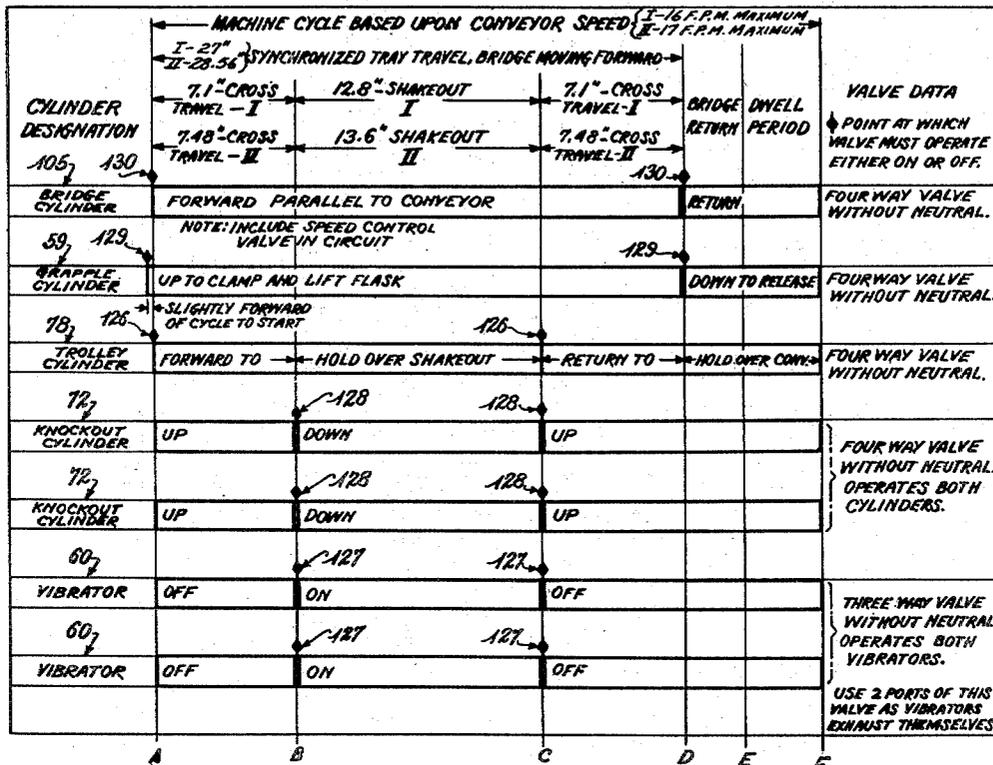 MACHINE CYCLE BASED UPON CONVEYOR SPEED { I-16 F.P.M. MAXIMUM
II-17 F.P.M. MAXIMUM
I-27"
II-28.56" } SYNCHRONIZED TRAY TRAVEL, BRIDGE MOVING FORWARD
CYLINDER
DESIGNATION
7.1"-CROSS
TRAVEL-I
12.8"-SHAKEOUT
I
7.1"-CROSS
TRAVEL-I
7.48"-CROSS
TRAVEL-II
13.6" SHAKEOUT
II
7.48"-CROSS
TRAVEL-II
BRIDGE
RETURN
DWELL
PERIOD
VALVE DATA
POINT AT WHICH
VALVE MUST OPERATE
EITHER ON OR OFF.
105 130 130
BRIDGE
CYLINDER
FORWARD PARALLEL TO CONVEYOR
RETURN
FOUR WAY VALVE
WITHOUT NEUTRAL.
NOTE: INCLUDE SPEED CONTROL
VALVE IN CIRCUIT
59 129 129
GRAPPLE
CYLINDER
UP TO CLAMP AND LIFT FLASK
DOWN TO RELEASE
FOURWAY VALVE
WITHOUT NEUTRAL.
SLIGHTLY FORWARD
OF CYCLE TO START
78 126 126
TROLLEY
CYLINDER
FORWARD TO
HOLD OVER SHAKEOUT
RETURN TO
HOLD OVER CONV.
FOUR WAY VALVE
WITHOUT NEUTRAL.
72 128 128
KNOCKOUT
CYLINDER
UP
DOWN
UP
72 128 128
KNOCKOUT
CYLINDER
UP
DOWN
UP
FOUR WAY VALVE
WITHOUT NEUTRAL.
OPERATES BOTH
CYLINDERS.
60 127 127
VIBRATOR
OFF
ON
OFF
60 127 127
VIBRATOR
OFF
ON
OFF
THREE WAY VALVE
WITHOUT NEUTRAL
OPERATES BOTH
VIBRATORS.
USE 2 PORTS OF THIS
VALVE AS VIBRATORS
EXHAUST THEMSELVES
A B C D E F